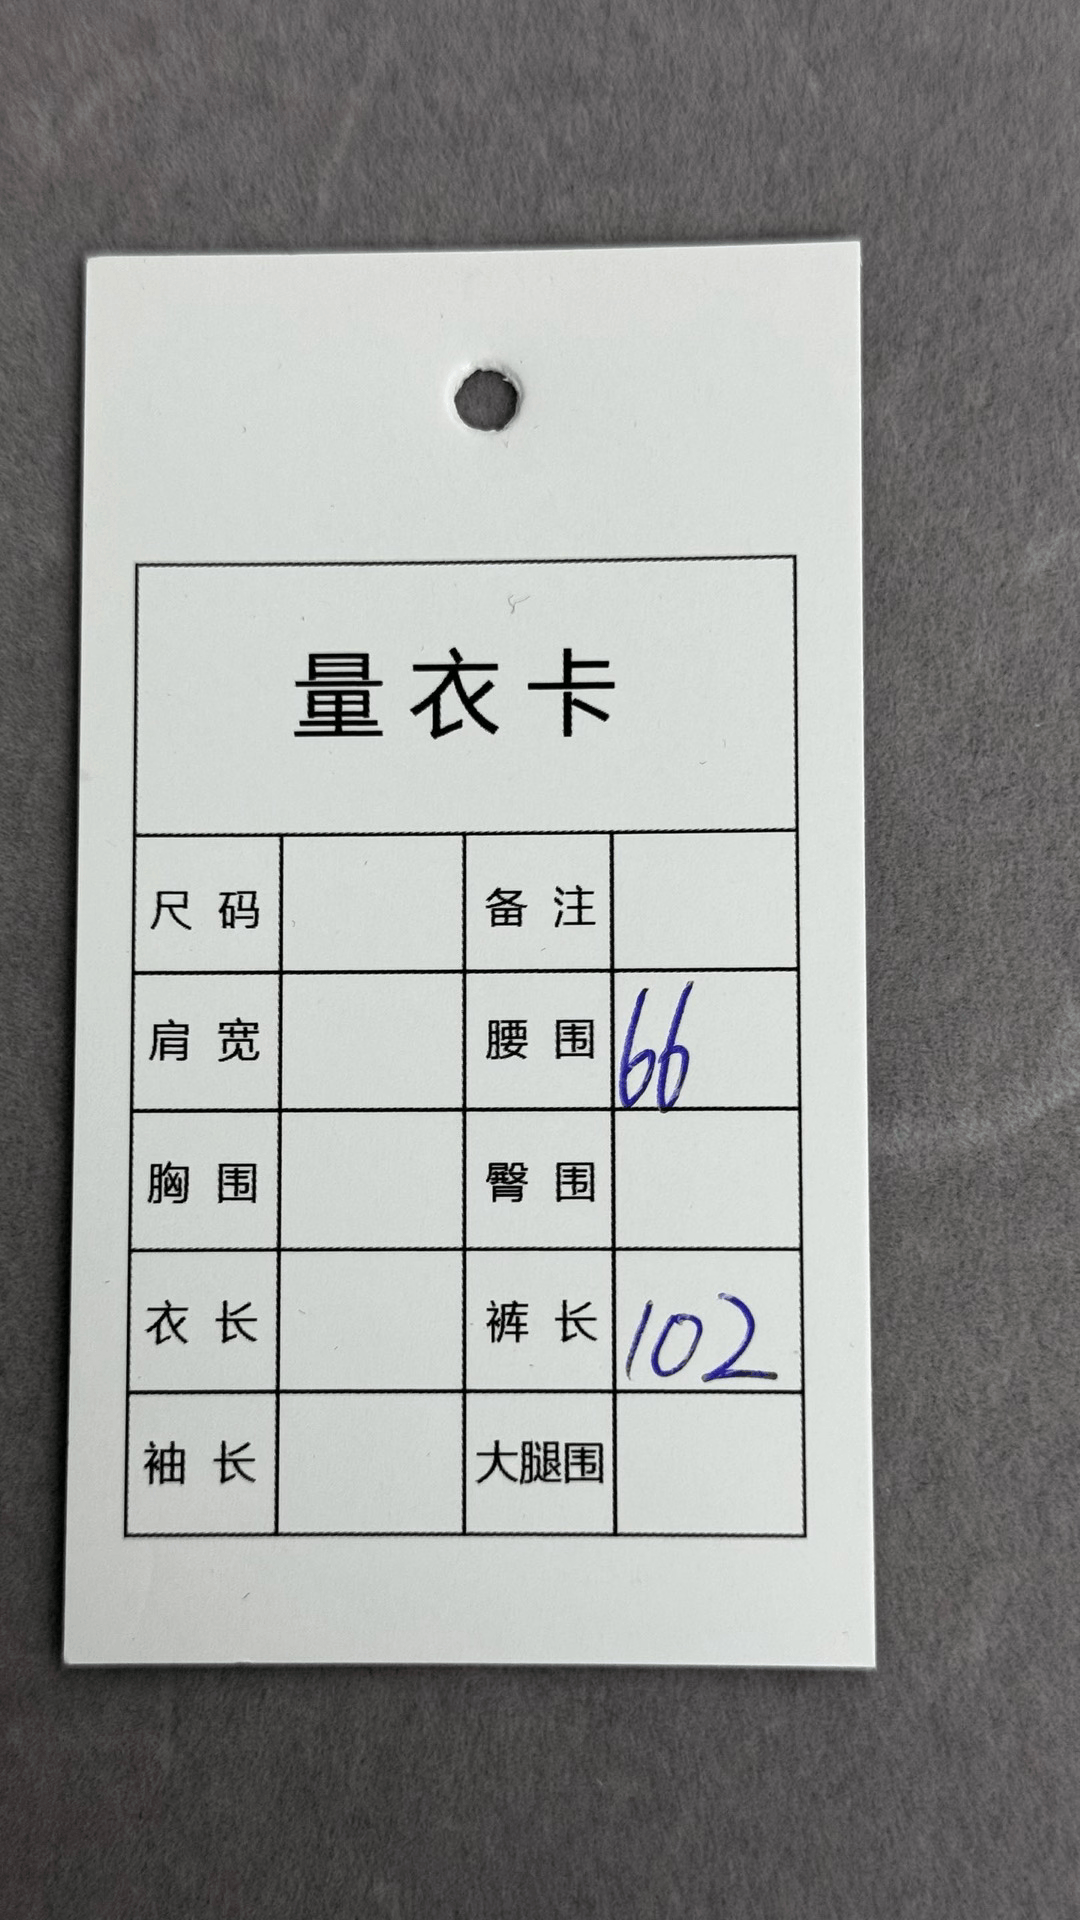 量衣卡
尺码 备注
肩宽 腰围 66
胸围 臀围
衣长 裤长 102
袖长 大腿围